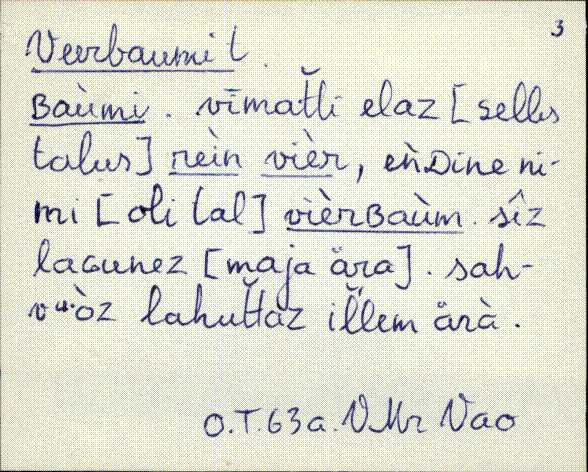 3
Veerbaumi l.
Baùmi. vīmat̆li elaz [selles
talus] rèin vièr, eǹDine ni-
mi [oli tal] vièrBaùm. sîz
laGunez [maja ära]. sah-
lahut̆taz il̆lem ärà.
O.T. 63 a. VMr Vao